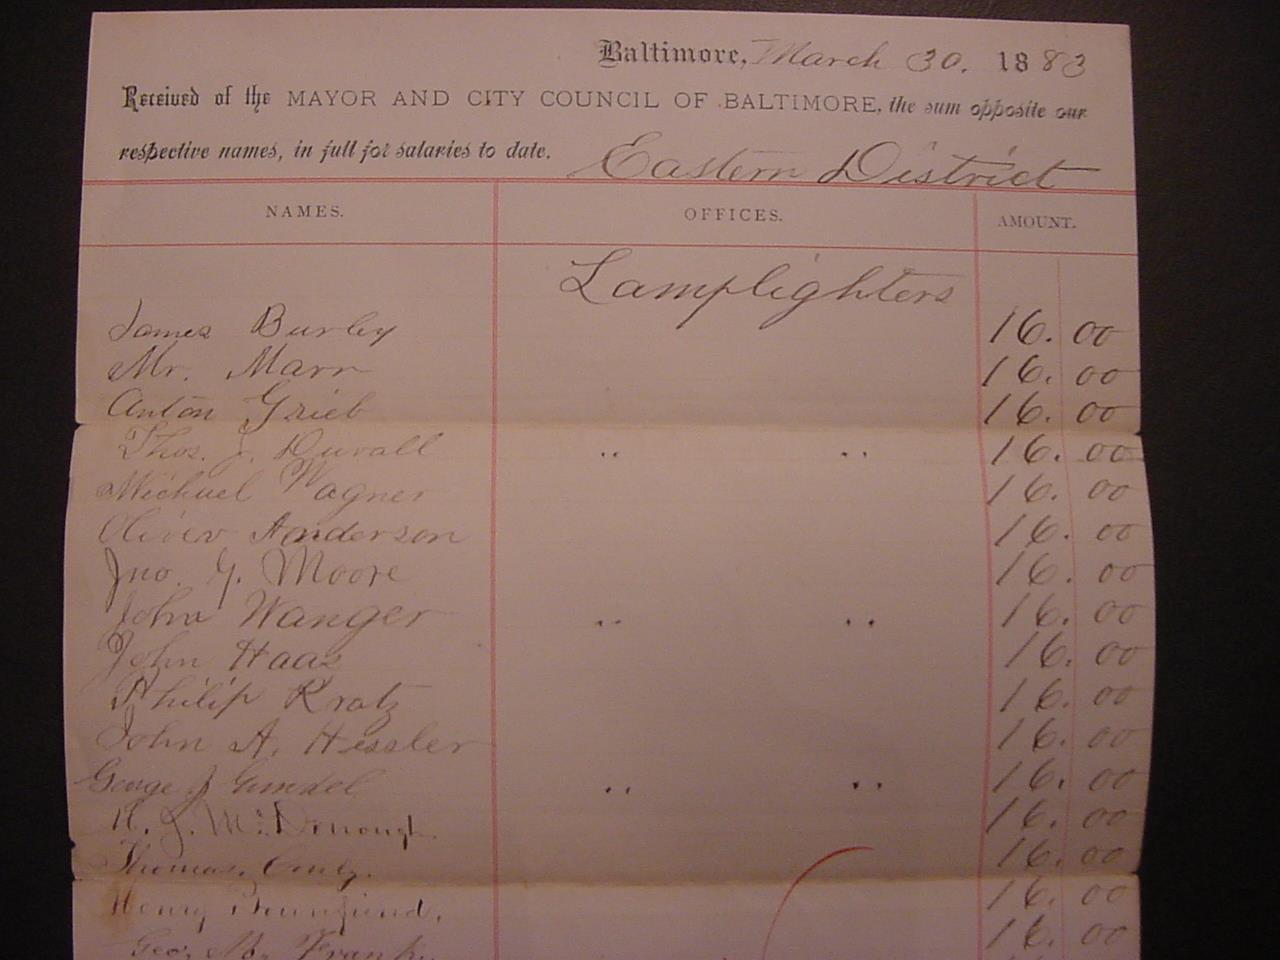 Baltimore, March 30. 1883
Received of the MAYOR AND CITY COUNCIL OF BALTIMORE, the sum opposite our
respective names, in full for salaries to date. Eastern District
NAMES. OFFICES. AMOUNT.
Lamplighters
James Burley 16. 00
Mr. Marr 16. 00
Anton Grieb 16. 00
Thos. J. Duvall " " 16. 00
Michael Wagner 16. 00
Oliver Anderson 16. 00
Jno. G. Moore 16. 00
John Wanger " " 16. 00
John Haas 16. 00
Philip Kratz 16. 00
John A. Hessler 16. 00
George J " " 16. 00
J. McDonough. 16. 00
Thomas 16. 00
Henry 16. 00
Geo. M. Frank 16. 00